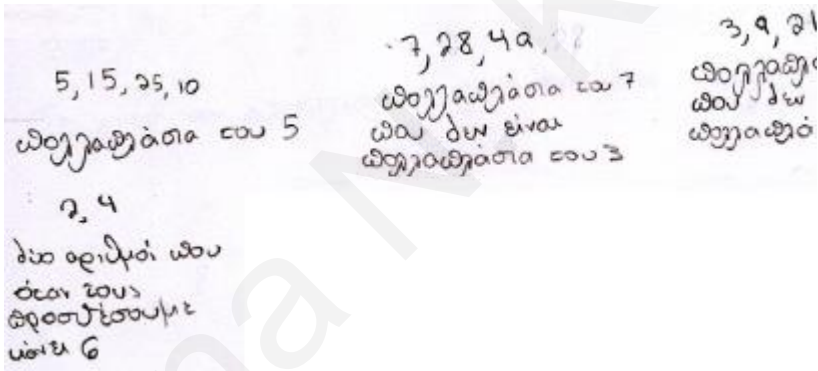 5, 15, 25, 10
πολλαπλάσια του 5
7, 28, 49
πολλαπλάσια του 7
που δεν είναι
πολλαπλάσια του 3
3, 9, 21
που δεν
2, 4
δύο αριθμοί που
όταν τους
προσθέσουμε
κάνει 6